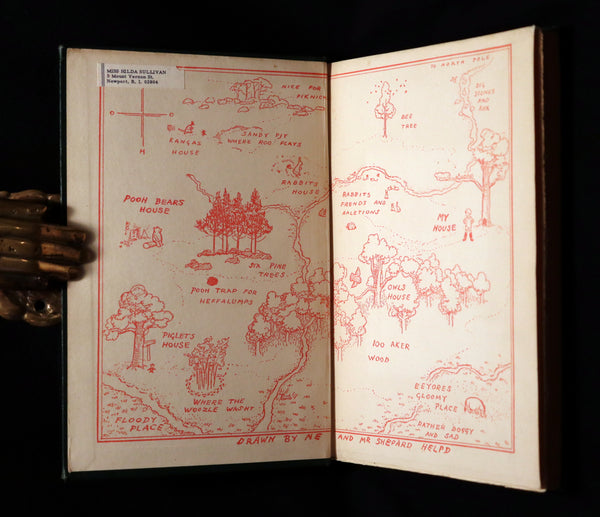 MISS HILDA SULLIVAN
5 Mount Vernon St.
Newport, R. I. 02804
NICE FOR
PIKNICKS
TO NORTH POLE
BIG
STONES
AND
ROX
BEE
TREE
SANDY PIT
WHERE ROO PLAYS
KANGAS
HOUSE
RABBITS
HOUSE
RABBITS
FRENDS AND
RALETIONS
MY
HOUSE
POOH BEARS
HOUSE
SIX PINE
TREES
POOH TRAP FOR
HEFFALUMPS
OWLS
HOUSE
PIGLETS
HOUSE
100 AKER
WOOD
WHERE THE
WOOZLE WASNT
EEYORES
GLOOMY
PLACE
RATHER BOGGY
AND SAD
FLOODY
PLACE
DRAWN BY ME AND MR SHEPARD HELPD